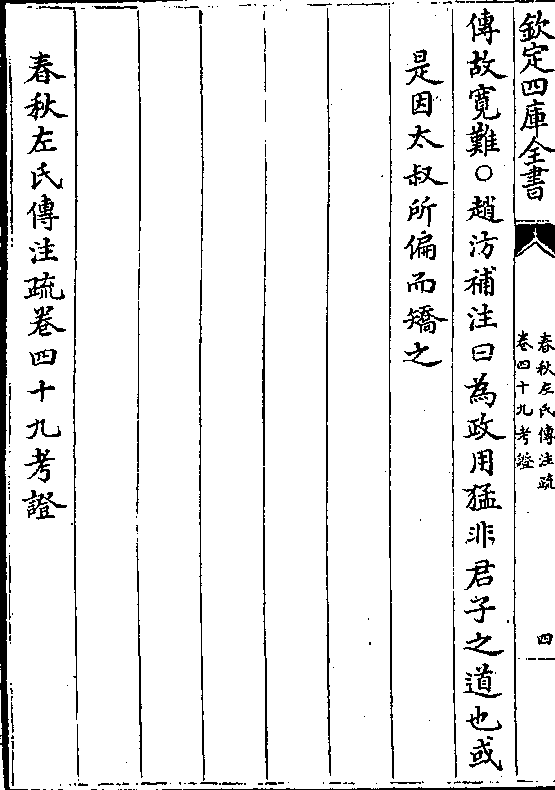 欽定四庫全書
春秋左氏傳注疏
卷四十九考證
四
傳故寛難○趙汸補注曰為政用猛非君子之道也或
是因太叔所偏而矯之
春秋左氏傳注疏卷四十九考證